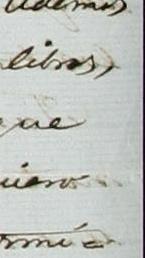 ademas
libros,
que
uiero
ormí=